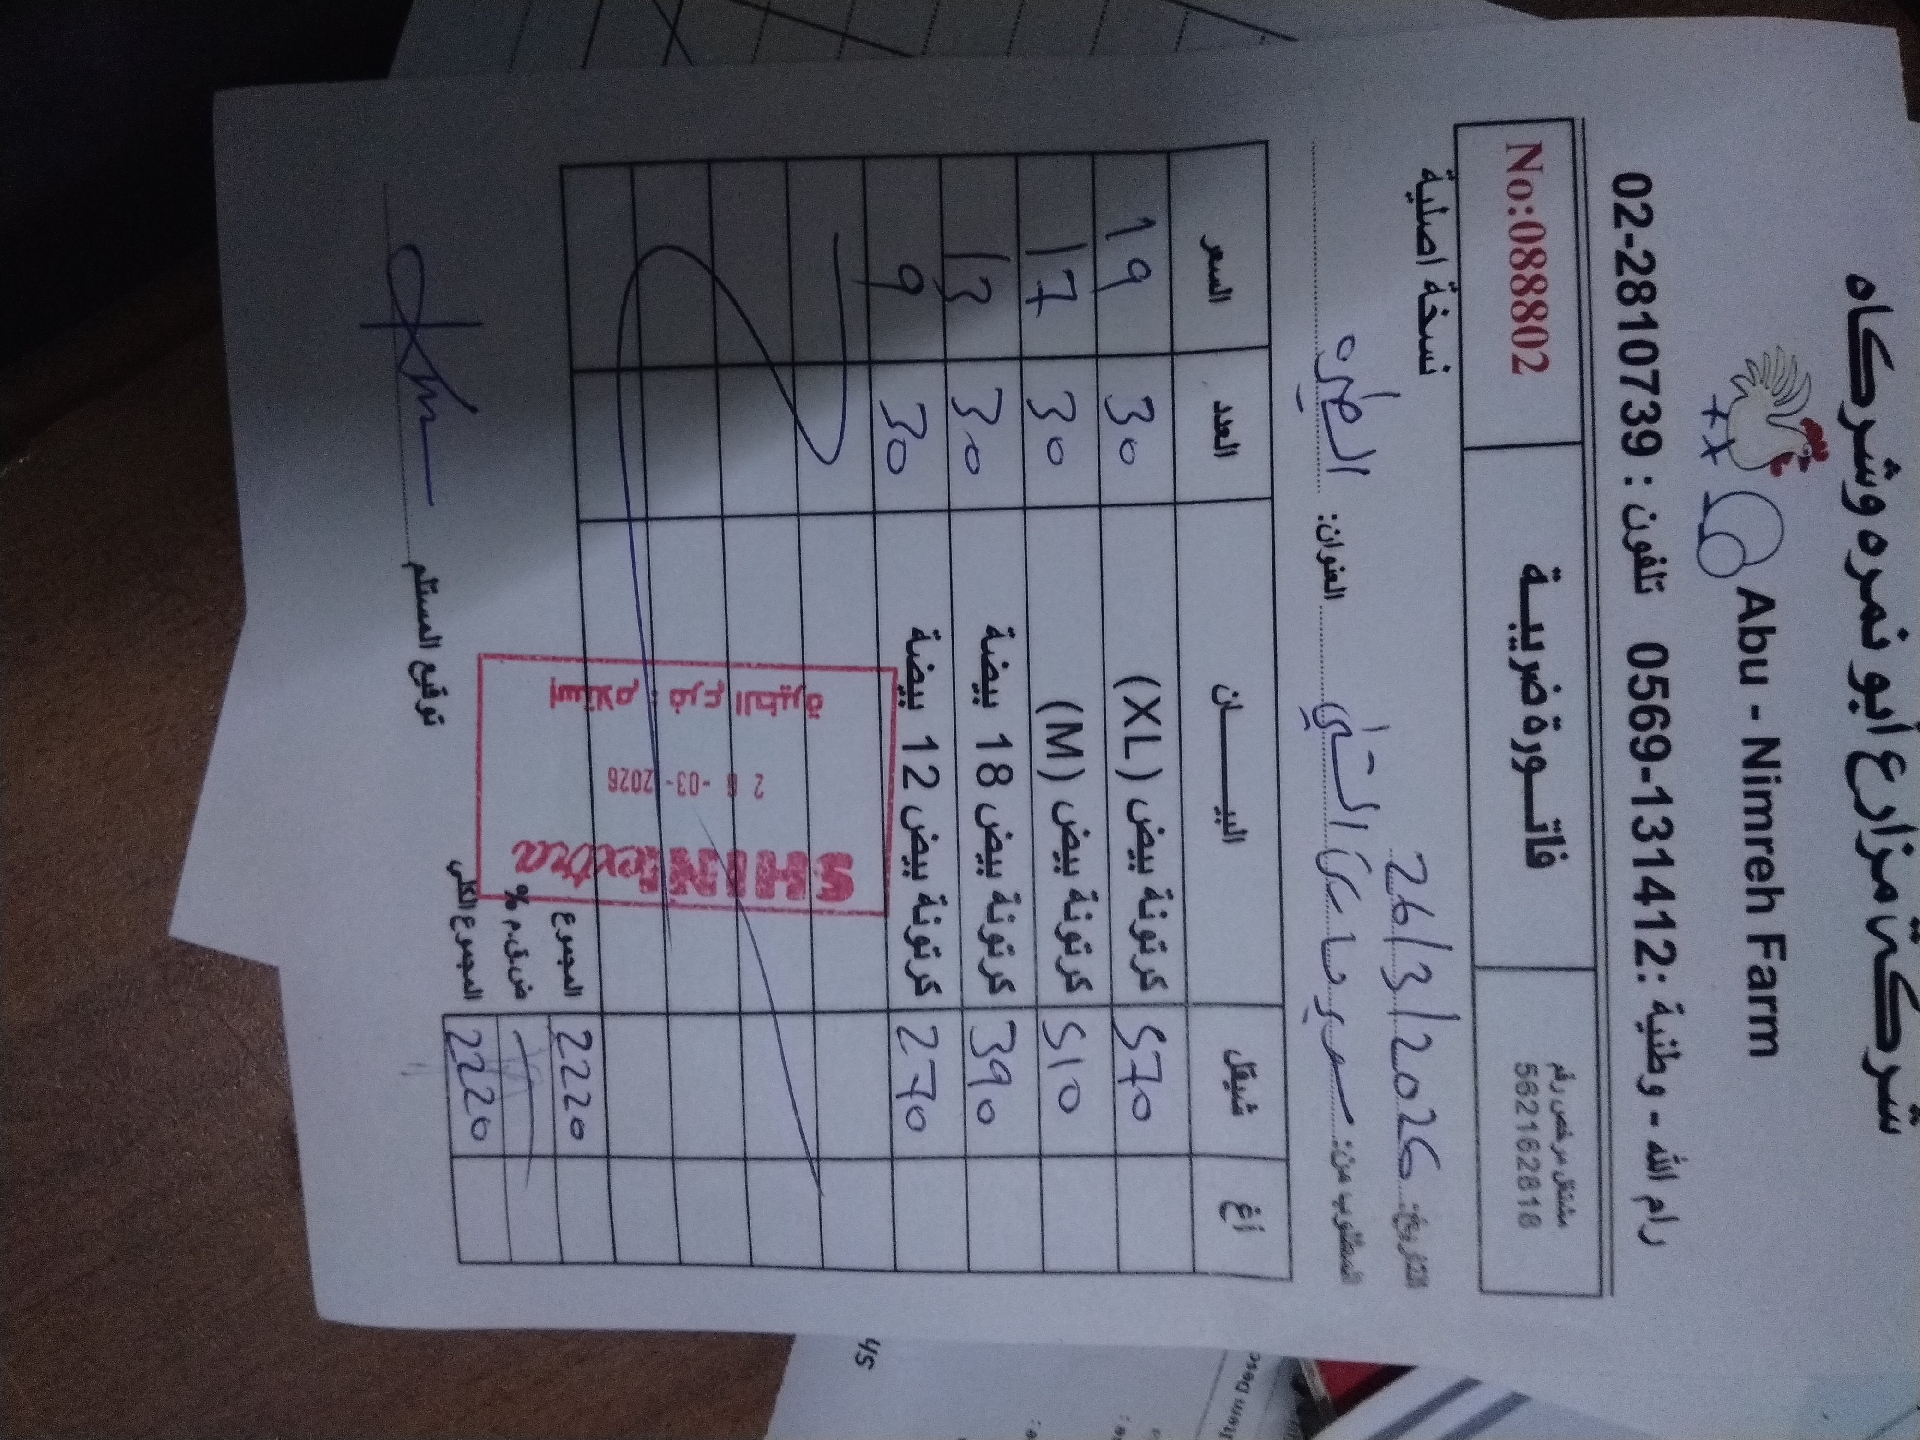 شركة مزارع أبو نمره وشركاه
Abu - Nimreh Farm
رام الله - وطنية : 0569-131412 تلفون : 02-2810739
مشتغل مرخص رقم
562162818
فاتــورة ضريبــة
No:088802
التاريخ: 26/3/2026
نسخة اصلية
المطلوب من: العنوان: الطيره
شيقل أغ البيـــــان العدد السعر
570 كرتونة بيض (XL) 30 19
510 كرتونة بيض (M) 30 17
390 كرتونة بيض 18 بيضة 30 13
270 كرتونة بيض 12 بيضة 30 9
SHINI extra
26-03-2026
إستلام : فرع الطيرة
2220 المجموع
ض.ق.م %
2220 المجموع الكلي
توقيع المستلم
45
Item Desc